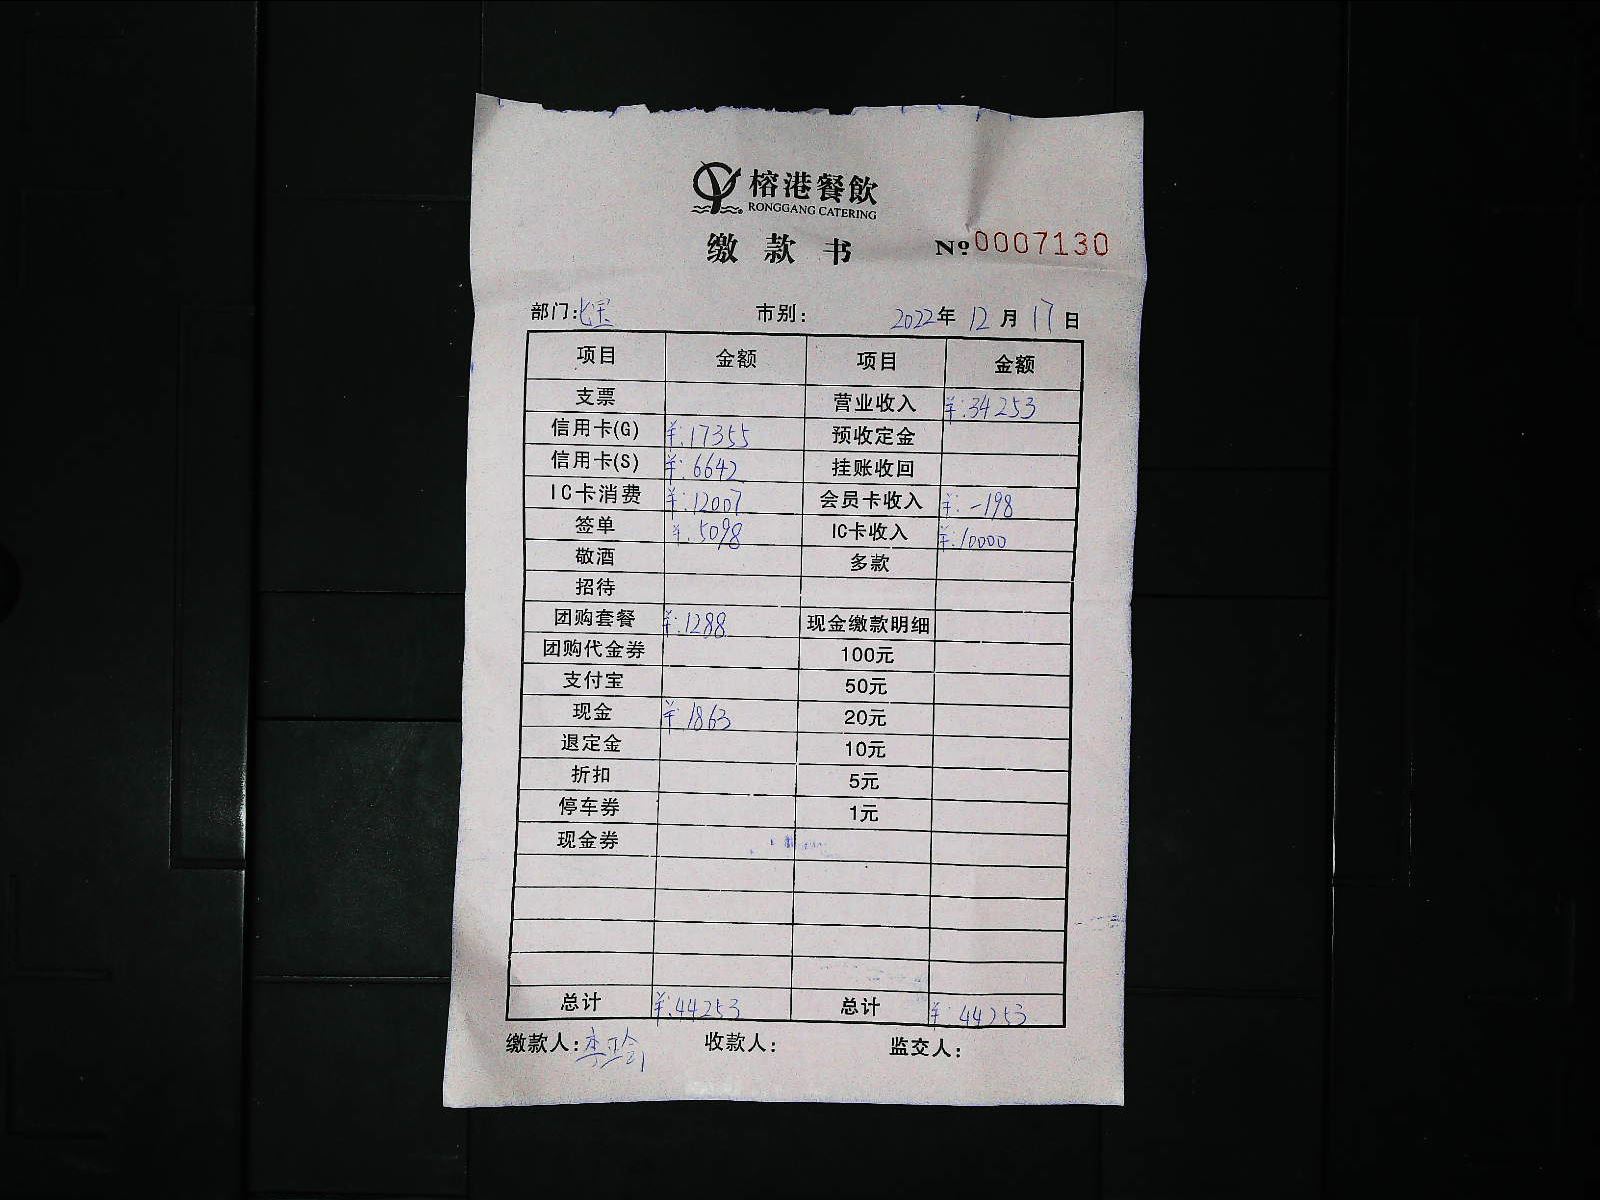 榕港餐飲
RONGGANG CATERING
缴款书 Nº 0007130
部门: 市别: 2022年 12月 17日
项目 金额 项目 金额
支票 营业收入 ¥:34253
信用卡(G) ¥:17355 预收定金
信用卡(S) ¥:6642 挂账收回
IC卡消费 ¥:12007 会员卡收入 ¥:-198
签单 ¥:5098 IC卡收入 ¥:10000
敬酒 多款
招待
团购套餐 ¥:1288 现金缴款明细
团购代金券 100元
支付宝 50元
现金 ¥:1863 20元
退定金 10元
折扣 5元
停车券 1元
现金券
总计 ¥:44253 总计 ¥:44253
缴款人: 收款人: 监交人: